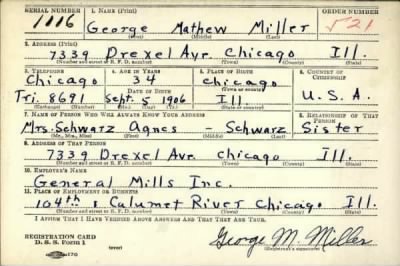 SERIAL NUMBER 1. NAME (Print) ORDER NUMBER
1116 George Mathew Miller 521
(First) (Middle) (Last)
2. ADDRESS (Print)
7339 Drexel Ave. Chicago Ill.
(Number and street or R. F. D. number) (Town) (County) (State)
3. TELEPHONE 4. AGE IN YEARS 5. PLACE OF BIRTH 6. COUNTRY OF CITIZENSHIP
Chicago 34 Chicago
DATE OF BIRTH (Town or county)
Tri. 8691 Sept. 5 1906 Ill. U.S.A.
(Exchange) (Number) (Mo.) (Day) (Yr.) (State or country)
7. NAME OF PERSON WHO WILL ALWAYS KNOW YOUR ADDRESS 8. RELATIONSHIP OF THAT PERSON
Mrs. Schwarz Agnes - Schwarz Sister
(Mr., Mrs., Miss) (First) (Middle) (Last)
9. ADDRESS OF THAT PERSON
7339 Drexel Ave. Chicago Ill.
(Number and street or R. F. D. number) (Town) (County) (State)
10. EMPLOYER'S NAME
General Mills Inc.
11. PLACE OF EMPLOYMENT OR BUSINESS
104th & Calumet River Chicago Ill.
(Number and street or R. F. D. number) (Town) (County) (State)
I AFFIRM THAT I HAVE VERIFIED ABOVE ANSWERS AND THAT THEY ARE TRUE.
REGISTRATION CARD
D. S. S. Form 1 (over) George M. Miller
(Registrant's signature)